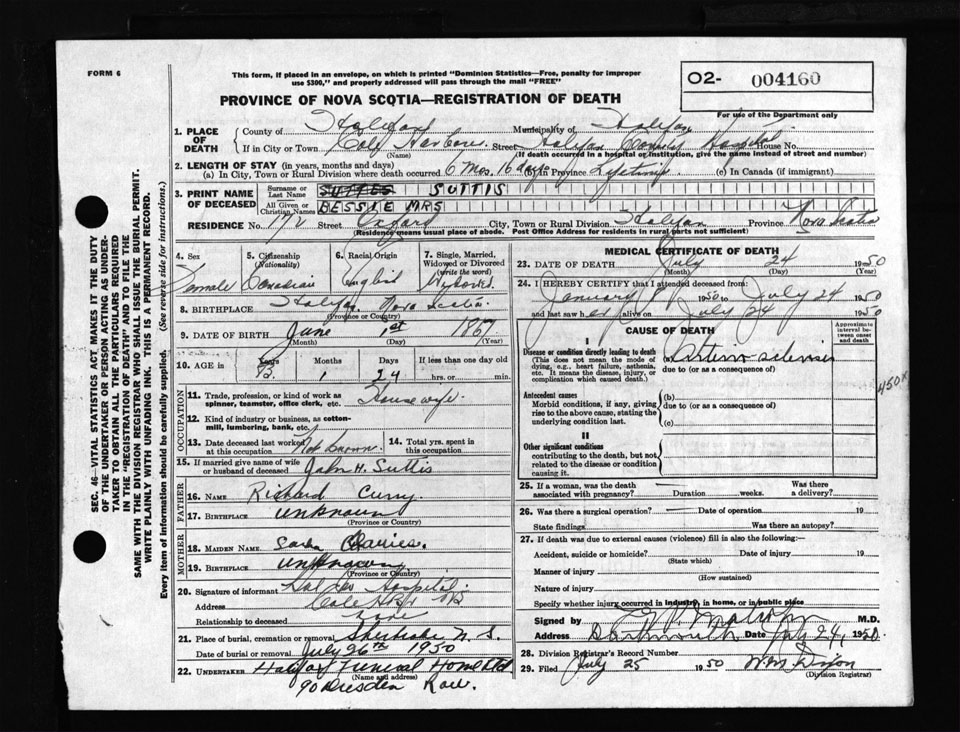 FORM 6
This form, if placed in an envelope, on which is printed "Dominion Statistics—Free, penalty for improper
use $300," and properly addressed will pass through the mail "FREE"
O2- 004160
PROVINCE OF NOVA SCOTIA—REGISTRATION OF DEATH
For use of the Department only
1. PLACE OF DEATH
County of Halifax Municipality of Halifax
If in City or Town Cole Harbour Street Halifax County Hospital House No.
(Name) (If death occurred in a hospital or institution, give the name instead of street and number)
2. LENGTH OF STAY (in years, months and days)
(a) In City, Town or Rural Division where death occurred 6 Mos. 16 days (b) In Province Lifetime (c) In Canada (if immigrant)
3. PRINT NAME OF DECEASED
Surname or Last Name SUTTIS
All Given or Christian Names BESSIE MRS
RESIDENCE No. 172 Street Oxford City, Town or Rural Division Halifax Province Nova Scotia
(Residence means usual place of abode. Post Office Address for residents in rural parts not sufficient)
4. Sex Female
5. Citizenship (Nationality) Canadian
6. Racial Origin English
7. Single, Married, Widowed or Divorced (write the word) Widowed
8. BIRTHPLACE Halifax Nova Scotia
(Province or Country)
9. DATE OF BIRTH June 1st 1867
(Month) (Day) (Year)
10. AGE in Years Months Days If less than one day old
1 24 hrs. or min.
OCCUPATION
11. Trade, profession, or kind of work as
spinner, teamster, office clerk, etc. Housewife
12. Kind of industry or business, as cotton-
mill, lumbering, bank, etc.
13. Date deceased last worked at this occupation Not known
14. Total yrs. spent in this occupation
15. If married give name of wife
or husband of deceased John H. Suttis
FATHER
16. NAME Richard Curry
17. BIRTHPLACE Unknown
(Province or Country)
MOTHER
18. MAIDEN NAME
19. BIRTHPLACE Unknown
(Province or Country)
20. Signature of informant Hospital
Address Cole
Relationship to deceased none
21. Place of burial, cremation or removal Sherbrooke N.S.
Date of burial or removal July 26th 1950
22. UNDERTAKER Halifax Funeral Home Ltd
(Name and address)
90 Dresden Row
MEDICAL CERTIFICATE OF DEATH
23. DATE OF DEATH July 24 1950
(Month) (Day) (Year)
24. I HEREBY CERTIFY that I attended deceased from:
January 8 1950 to July 24 1950
and last saw her alive on July 24 1950
CAUSE OF DEATH
Approximate interval between onset and death
I
Disease or condition directly leading to death (a) Arterio-sclerosis
(This does not mean the mode of
dying, e.g., heart failure, asthenia,
etc. It means the disease, injury, or
complication which caused death.)
due to (or as a consequence of)
Antecedent causes
Morbid conditions, if any, giving
rise to the above cause, stating the
underlying condition last.
(b)
due to (or as a consequence of)
(c)
450
II
Other significant conditions
contributing to the death, but not
related to the disease or condition
causing it.
25. If a woman, was the death
associated with pregnancy? — Duration weeks. Was there a delivery?
26. Was there a surgical operation? — Date of operation 19
State findings Was there an autopsy?
27. If death was due to external causes (violence) fill in also the following:—
Accident, suicide or homicide? Date of injury 19
(State which)
Manner of injury
(How sustained)
Nature of injury
Specify whether injury occurred in industry, in home, or in public place
Signed by M.D.
Address Dartmouth Date July 24, 1950
28. Division Registrar's Record Number
29. Filed July 25 1950 Wm. Dixon
(Division Registrar)
SEC. 46—VITAL STATISTICS ACT MAKES IT THE DUTY
OF THE UNDERTAKER OR PERSON ACTING AS UNDER-
TAKER TO OBTAIN ALL THE PARTICULARS REQUIRED
IN THE "REGISTRATION OF DEATH" AND TO FILE THE
SAME WITH THE DIVISION REGISTRAR WHO SHALL ISSUE THE BURIAL PERMIT.
WRITE PLAINLY WITH UNFADING INK. THIS IS A PERMANENT RECORD.
Every item of information should be carefully supplied. (See reverse side for instructions.)